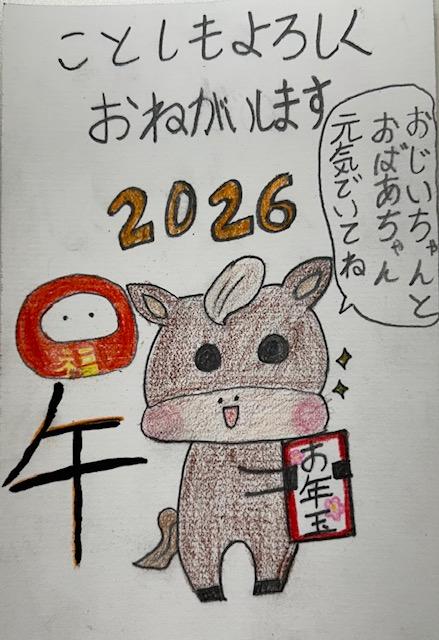 ことしもよろしく
おねがいします
おじいちゃんと
おばあちゃん
元気でいてね
2026
福
午
お年玉